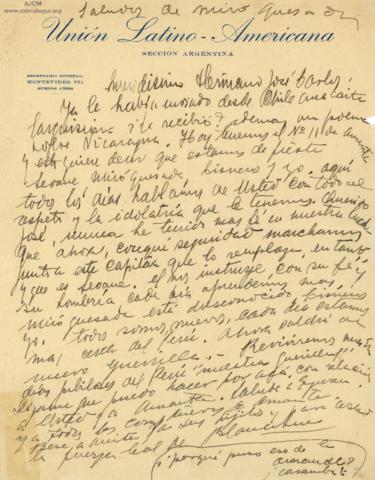 AJCM
www.mariategui.org
Saludos de Miró Quesada
Unión Latino-Americana
SECCION ARGENTINA
SECRETARIA GENERAL:
MONTEVIDEO 751
BUENOS AIRES
Hermano José Carlos:
Ya le había enviado desde Chile una carta
¿la recibió? además un poema
sobre Nicaragua. Hoy tenemos el Nº 11 de Amauta
y esto quiere decir que estamos de fiesta
Seoane Miró Quesada, Cisneros y yo. aquí
todos los días hablamos de Usted con todo el
respeto y la idolatría que le tenemos. Querido
José, nunca he tenido mas fé en nuestra
que ahora, con qué seguridad marchamos
junto a este capitán que lo
y que es Seoane. El nos instruye, con su fé y
su hombría cada día aprendemos mas,
Miró Quesada está desconocido, Cisneros
yo, todos somos nuevos, cada día estamos
mas cerca del Perú. Ahora saldrá un
nuevo guerrilla. Reviviremos
días jubilosos del Perú "nuestras guerrillas"
Dígame que puedo hacer por acá, con relación
a Usted y a Amauta. Saluda a
y a todos los compañeros de Amauta
bese a Anita, a sus hijitos y
la fuerza leal de
Blanca Luz
¿porqué puso eso de la
¡caramba!